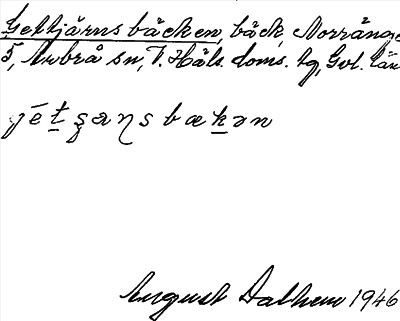 Getkjärns bäcken, bäck, Norränge
5, Arbrå sn, V. Häls. doms. tg, Gvl. län
jétʂəɳsbækən
August Dalhem 1946